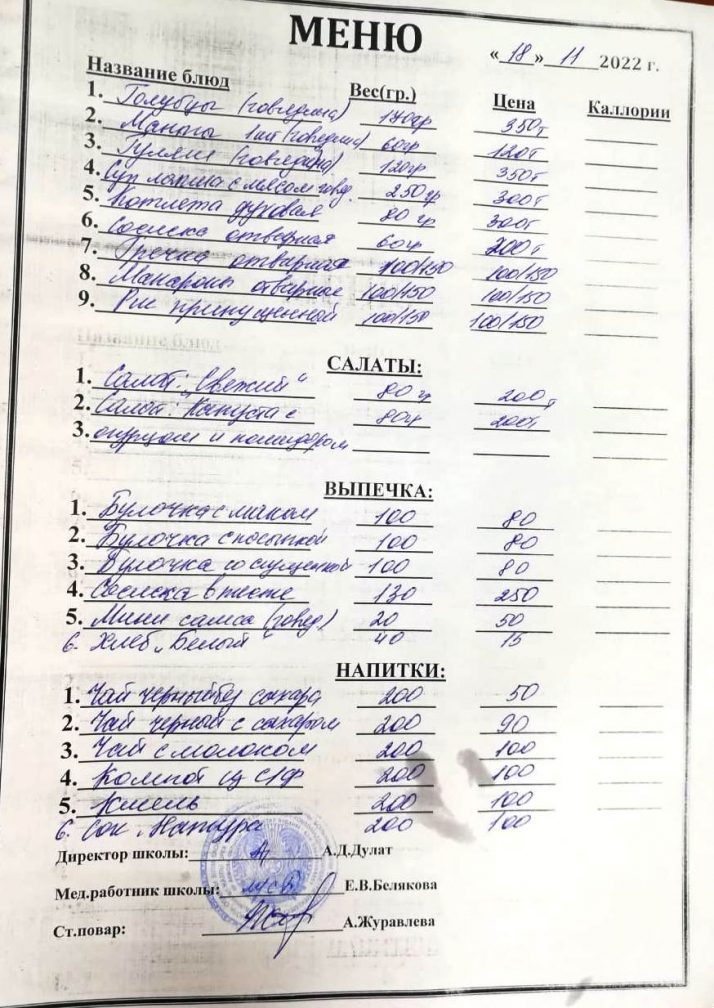 МЕНЮ
« 18 » 11 2022 г.
Название блюд Вес(гр.) Цена Каллории
1. Голубцы (говядина) 170гр 350т
2. Манты 1шт (говядина) 60гр 120т
3. Гуляш (говядина) 120гр 350т
4. Суп лапша с мясом говяд. 250гр 300т
5. Котлета духовая 80 гр 300т
6. Сосиска отварная 60гр 200т
7. Гречка отварная 100/150 100/150
8. Макароны отварные 100/150 100/150
9. Рис припущенной 100/150 100/150
САЛАТЫ:
1. Салат: "Свежий" 80 гр 200т
2. Салат: "Капуста с 80гр 200т
3. огурцом и помидором
ВЫПЕЧКА:
1. Булочка с маком 100 80
2. Булочка с посыпкой 100 80
3. Булочка со сгущенкой 100 80
4. Сосиска в тесте 130 250
5. Мини самса (говяд) 20 50
6. Хлеб "Белый" 40 15
НАПИТКИ:
1. Чай черный без сахара 200 50
2. Чай черной с сахаром 200 90
3. Чай с молоком 200 100
4. Компот из С/Ф 200 100
5. Кисель 200 100
6. Сок Натура 200 100
Директор школы: А.Д.Дулат
Мед.работник школы: Е.В.Белякова
Ст.повар: А.Журавлева